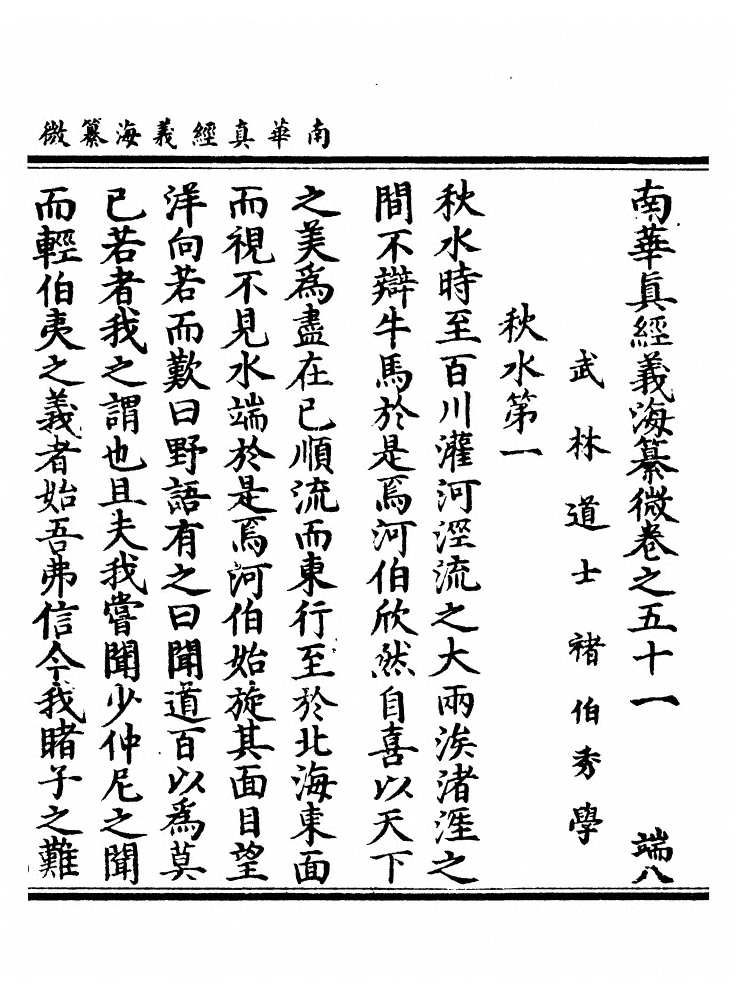 南華真經義海纂微
南華眞經義海纂微卷之五十一 端八
武林道士褚伯秀學
秋水第一
秋水時至百川灌河涇流之大兩涘渚涯之
間不辯牛馬於是焉河伯欣然自喜以天下
之美爲盡在已順流而東行至於北海東面
而視不見水端於是焉河伯始旋其面目望
洋向若而歎曰野語有之曰聞道百以爲莫
已若者我之謂也且夫我嘗聞少仲尼之聞
而輕伯夷之義者始吾弗信今我睹子之難